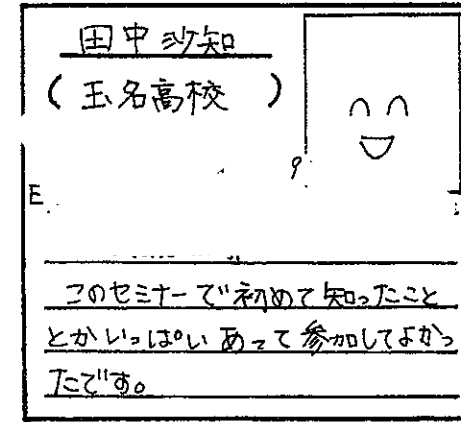 田中沙知
(玉名高校)
E
このセミナーで初めて知ったこと
とかいっぱいあって参加してよかっ
たです。